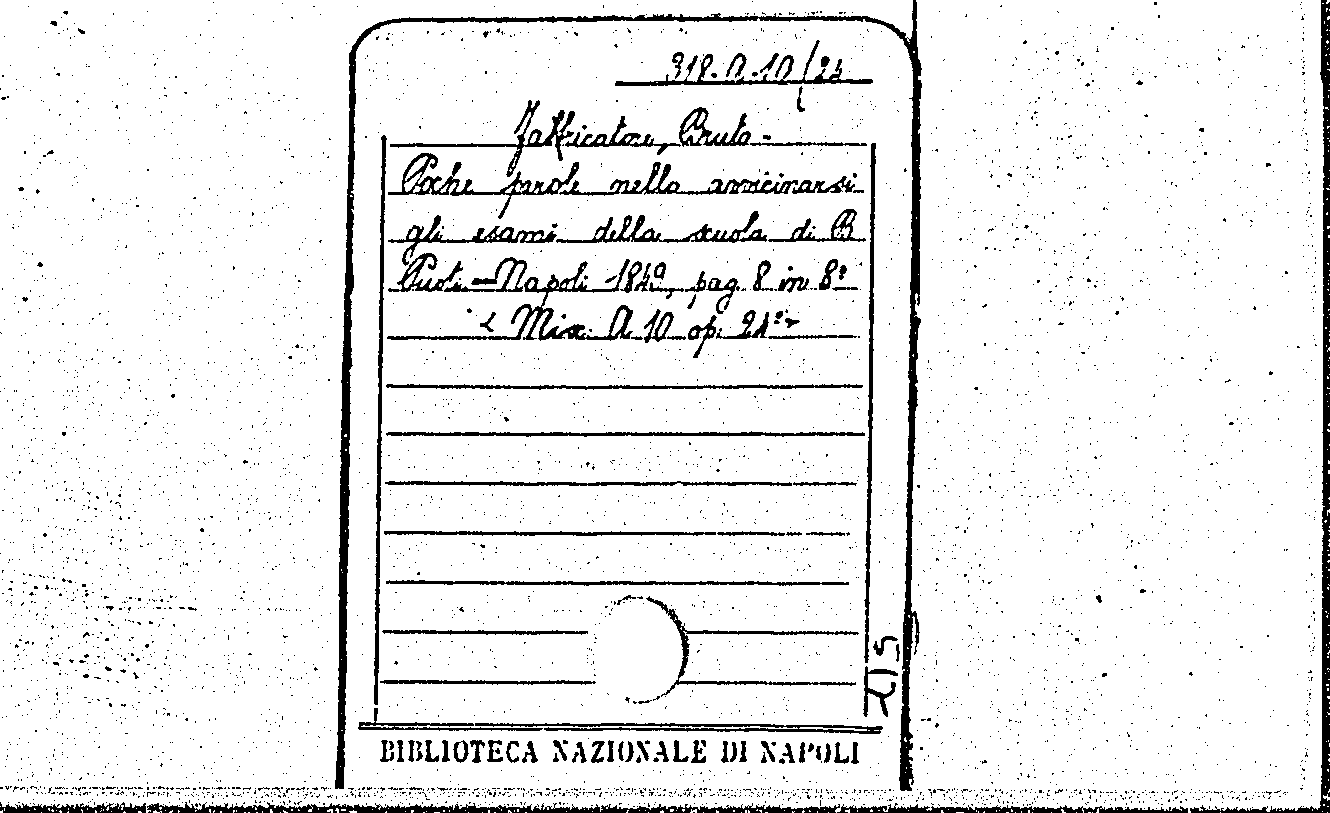 318. A. 10/24
Fabbricatore, Bruto -
Poche parole nello avvicinarsi
gli esami della scuola di B
Puoti - Napoli 1849, pag 8 in 8º
Mix. A 10 op. 24ª
BIBLIOTECA NAZIONALE DI NAPOLI